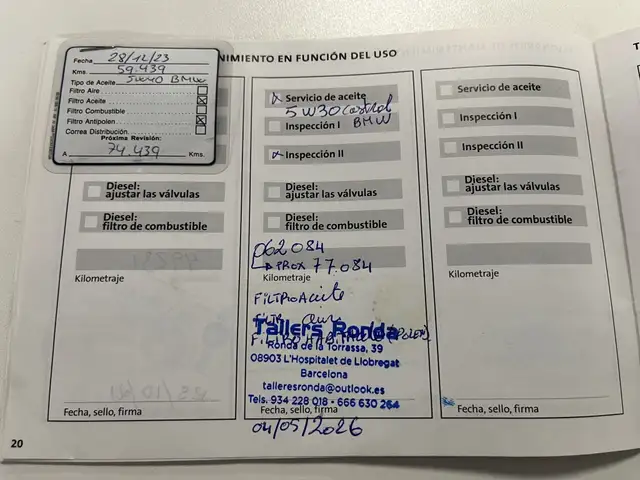 NIMIENTO EN FUNCIÓN DEL USO
T
Fecha 28/12/23
Kms. 59.439
Tipo de Aceite 5W40 BMW
Filtro Aire
Filtro Aceite
Filtro Combustible
Filtro Antipolen
Correa Distribución
Próxima Revisión:
A 74.439 Kms.
Diesel:
ajustar las válvulas
Diesel:
filtro de combustible
Kilometraje
Fecha, sello, firma
Servicio de aceite
5W30 Castrol
BMW
Inspección I
Inspección II
Diesel:
ajustar las válvulas
Diesel:
filtro de combustible
062084
PROX 77.084
Kilometraje
Filtro Aceite
Tallers Ronda
Ronda de la Torrassa, 39
08903 L'Hospitalet de Llobregat
Barcelona
talleresronda@outlook.es
Tels. 934 228 018 - 666 630 264
Fecha, sello, firma
04/05/2026
Servicio de aceite
Inspección I
Inspección II
Diesel:
ajustar las válvulas
Diesel:
filtro de combustible
Kilometraje
Fecha, sello, firma
20